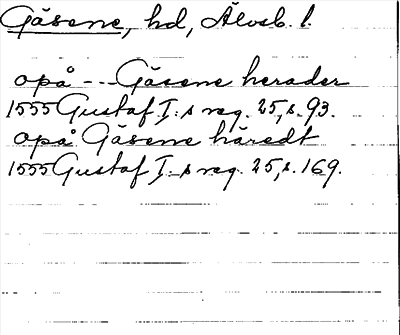 Gäsene, hd, Älvsb. l.
opå -- Gäsene herader
1555 Gustaf I:s reg. 25, s. 93.
opå Gäsene häredt
1555 Gustaf I:s reg. 25, s. 169.